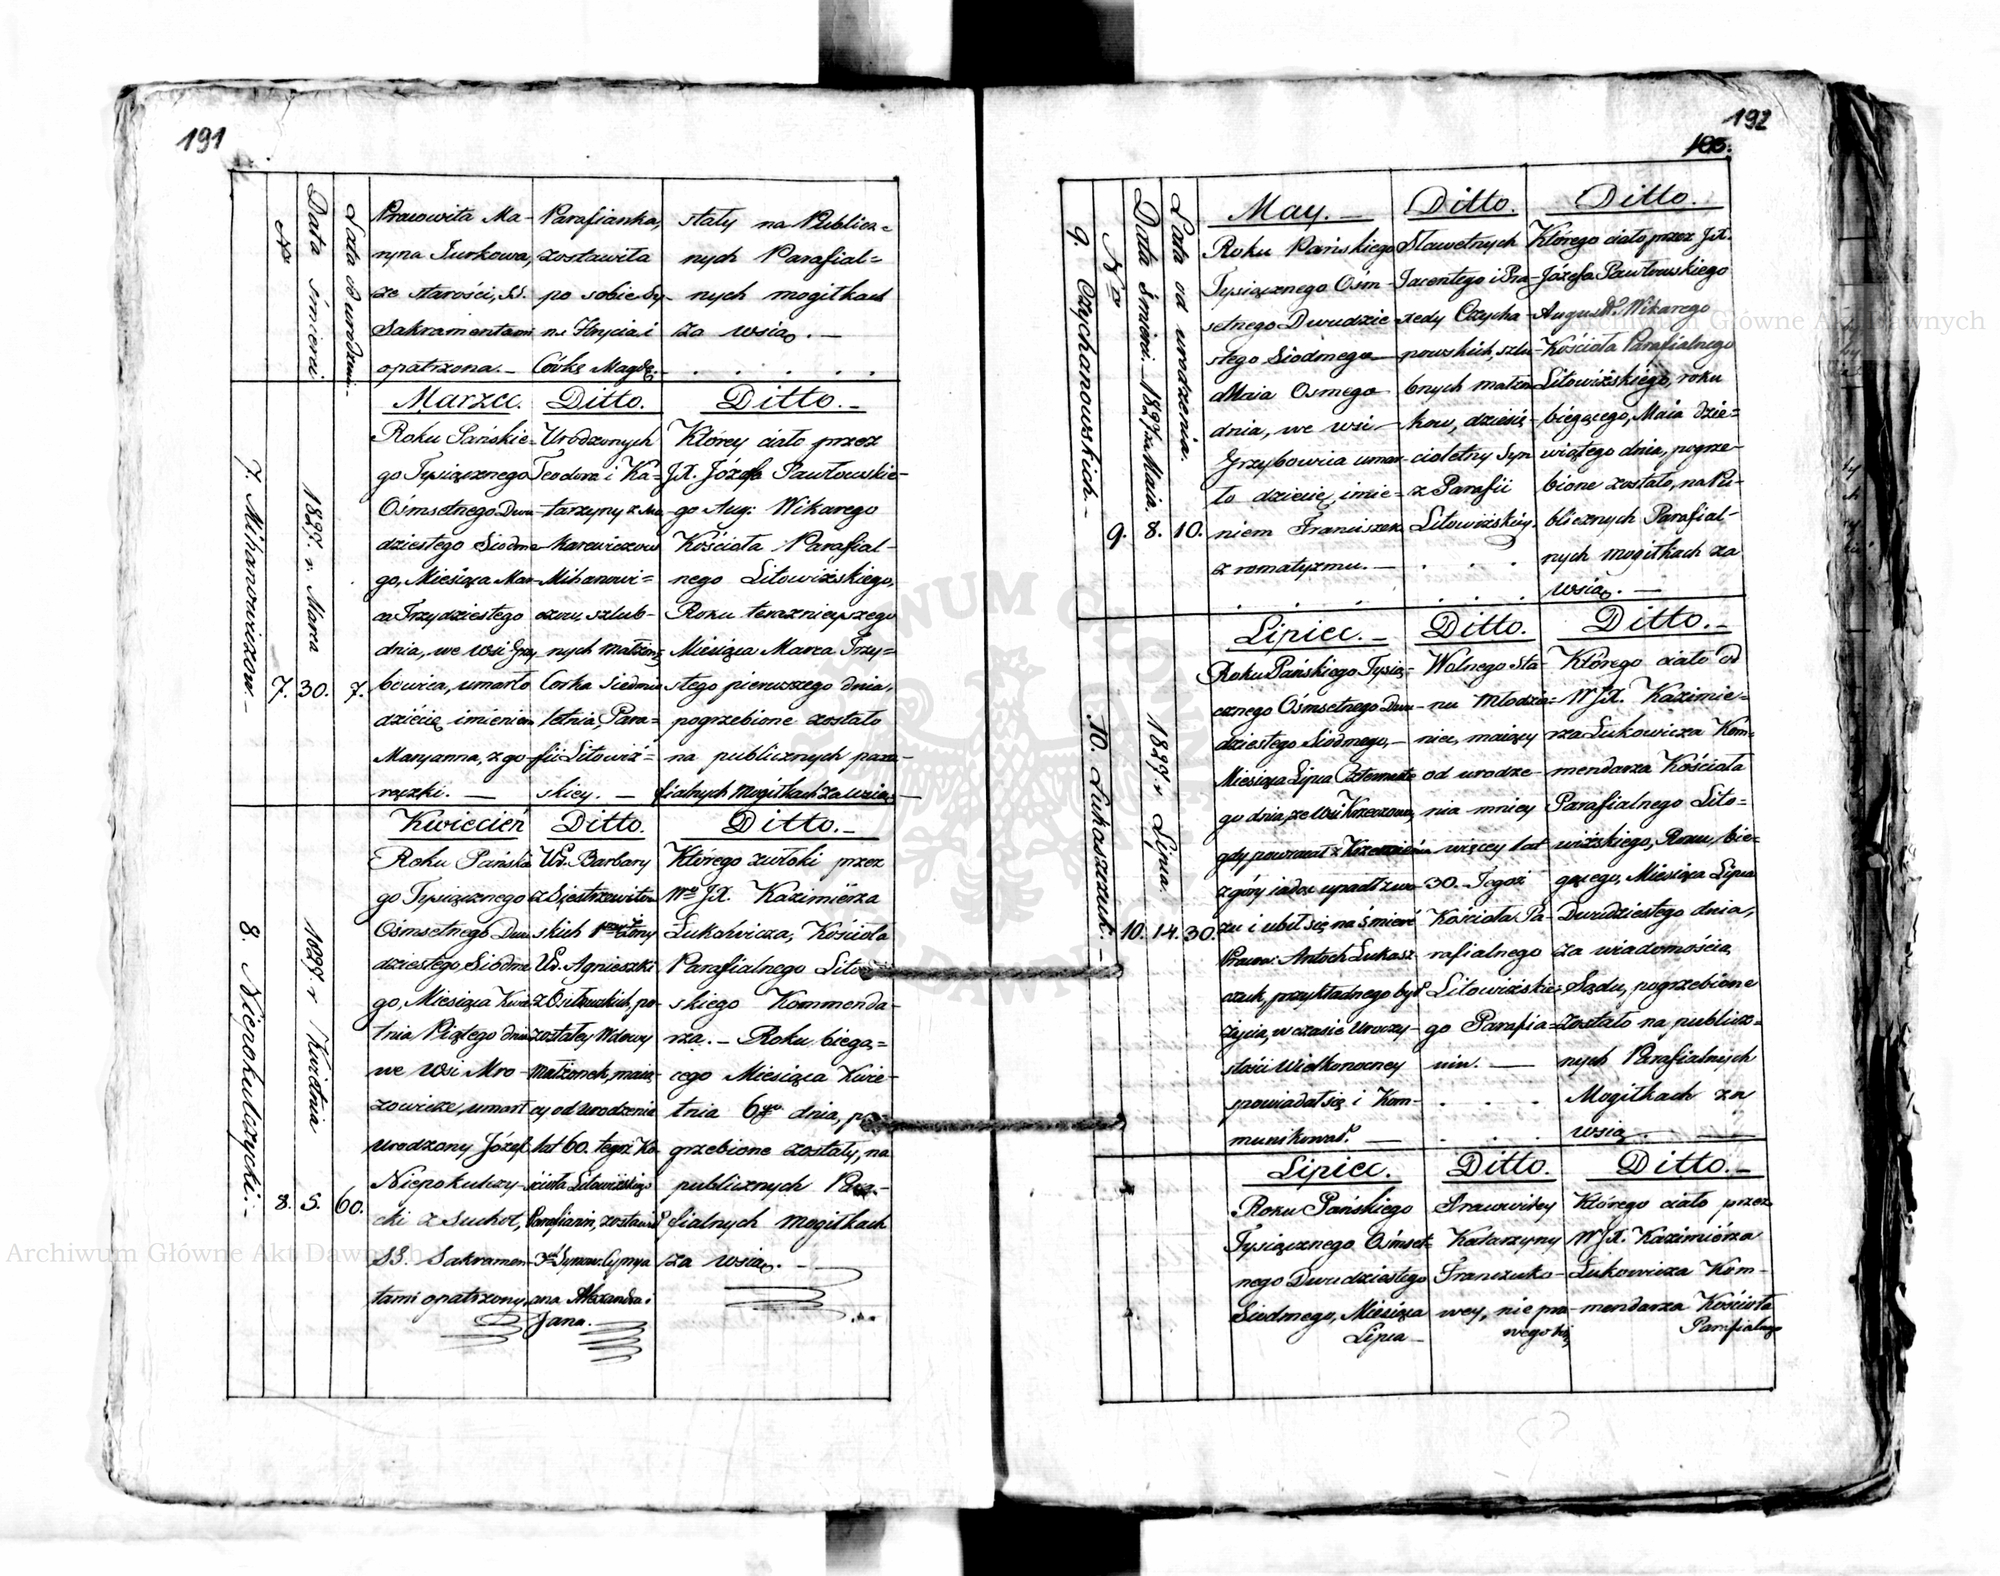 191
No
Data śmierci
Lata od urodzenia.
Prawowita Ma-
ryna Jurkowa,
ze starości, SS.
Sakramentami
opatrzona.—
Parafianka,
zostawiła
po sobie Sy-
na Hrycia i
Córkę Magdę.
stały na Publicz=
nych Parafial=
nych mogiłkach
za wsią.—
7. Mihanowiczow.—
7.
30.
1827. r. Marca
7.
Marzec.
Roku Pańskie-
go Tysiącznego
Ośmsetnego Dwu-
dziestego Siódme-
go, Miesiąca Mar-
ca Trzydziestego
dnia, we wsi Grzy-
bowica, umarło
dziécię imieniem
Maryanna, z go-
rączki.—
Ditto.
Urodzonych
Teodora i Ka-
tarzyny z Ma-
karewiczow
Mihanowi=
czow, szlub-
nych małżonk.
Corka Siedmio
letnia, Para=
fii Litowiż=
skiey.—
Ditto.—
Którey ciało przez
JX. Józefa Pawłowskie-
go Aug: Wikarego
Kościoła Parafial-
nego Litowiżskiego,
Roku teraznieyszego
Miesiąca Marca Trzy=
stego pierwszego dnia,
pogrzebione zostało
na publicznych para-
fialnych Mogiłkach za wsią.—
8. Niepokulczycki.—
8.
5.
1827. r Kwietnia
60.
Kwiecień
Roku Pańskie
go Tysiącznego
Ośmsetnego Dwu
dziestego Siódme
go, Miesiąca Kwie-
tnia Piątego dnia
we Wsi Mro-
zowicze, umarł
urodzony Józef
Niepokulczy-
cki z suchot,
SS. Sakramen-
tami opatrzony.
Ditto.
Ur. Barbary
z Siestrzewitow
skich 1wszey Żony
Ur. Agnieszki
z Ositowskich, po
zostałey Wdowy
Małżonek, maią
cy od urodzenia
lat 60. tegoż Ko
ścioła Litowiżskiego
Parafianin, zostawił
3ch Synow: Cypryj
ana Alexandra i
Jana.
Ditto.—
Którego zwłoki przez
Wgo JX. Kazimiérza
Łukowicza, Kościoła
Parafialnego Litowi
skiego Kommenda-
rza.— Roku biegą=
cego Miesiąca Kwie-
tnia 6go dnia, po-
grzebione zostały, na
publicznych Para-
fialnych mogiłkach
za wsią.—
192
183.
Nro
Data śmierci.
Lata od urodzenia.
9. Czychanowskich.—
9.
8.
1827 r. Maia.
10.
May.—
Roku Pańskiego
Tysiącznego Ośm-
setnego Dwudzie
stego Siodmego—
Maia Osmego
dnia, we wsi—
Grzybowica umar-
ło dziecię, imie-
niem Franciszek
z romatyzmu.—
Ditto.
Sławetnych
Jacentego i Pra-
xedy Czycha-
nowskich, szlu-
bnych małżon
kow, dziesię-
cioletny Syn
z Parafii
Litowiżskiey.
Ditto.
Którego ciało przez JX.
Józefa Pawłowskiego
August. Wikarego
Kościoła Parafialnego
Litowiżskiego, roku
biegącego, Maia dzie=
wiątego dnia, pogrze-
bione zostało, na Pu-
blicznych Parafial-
nych mogiłkach za
wsią.—
10. Łukaszczuk.—
10.
14.
1827 r Lipca.
30.
Lipiec.—
Roku Pańskiego Tysią=
cznego Ośmsetnego Dwu-
dziestego Siódmego,—
Miesiąca Lipca Czternaste
go dnia, ze Wsi
gdy powracał z
z góry iadąc upadł z wo-
zu i ubił się na śmierć
Praw: Antoch Łukasz
czuk, przykładnego był
życia, w czasie Uroczy-
stości Wielkonocney
spowiadał się i Kom-
munikował.—
Ditto.
Wolnego sta-
nu Młodzie-
niec, maiący
od urodze-
nia mniey
więcey lat
30. Tegoż
Kościoła Pa-
rafialnego
Litowiżskie-
go Parafia-
nin.—
Ditto.—
Którego ciało od
W JX. Kazimie=
rza Łukowicza Kom-
mendarza Kościoła
Parafialnego Lito=
wiżskiego, Roku, bie-
gącego, Miesiąca Lipca
Dwudziestego dnia,
za wiadomością
Sądu, pogrzebione
zostało na publicz=
nych Parafialnych
Mogiłkach za
wsią.—
Lipiec.
Roku Pańskiego
Tysiącznego Ośmset-
nego Dwudziestego
Siodmego, Miesiąca
Lipca—
Ditto.
Prawowitey
Katarzyny
Franczuko-
wey, nie pra-
wego łoż
Ditto.—
Którego ciało przez
W JX. Kazimiérza
Łukowicza Kom-
mendarza Kościoła
Parafialnego
Archiwum Główne Akt Dawnych
Archiwum Główne Akt Dawnych